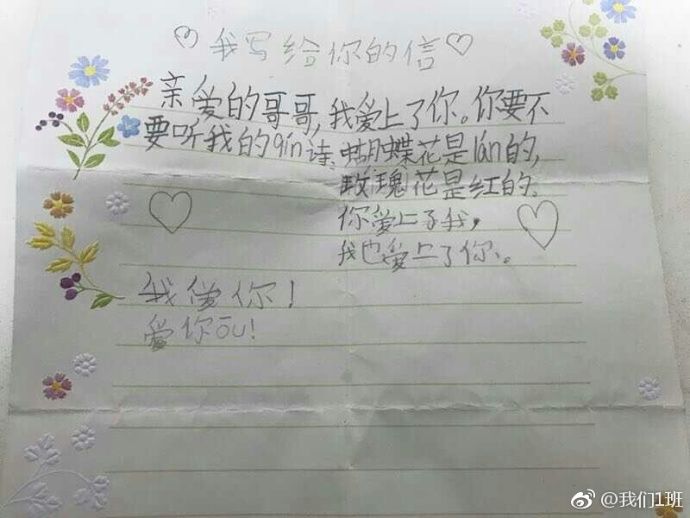 ♡我写给你的信♡
亲爱的哥哥,我爱上了你。你要不
要听我的qín诗,蝴蝶花是lán的,
玫瑰花是红的.
你爱上了我,
我也爱上了你.。
我爱你!
爱你ōu!
@我们1班